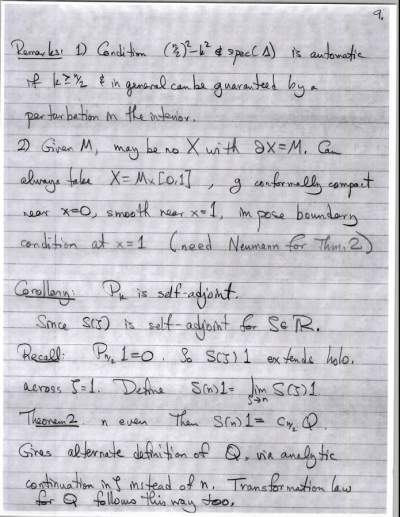 9.
Remarks: 1) Condition (n/2)² - k² ∉ spec(Δ) is automatic
if k ≥ n/2 & in general can be guaranteed by a
perturbation in the interior.
2) Given M, may be no X with ∂X = M. Can
always take X = M×[0,1], g conformally compact
near x=0, smooth near x=1, impose boundary
condition at x=1 (need Neumann for Thm. 2)
Corollary: Pₖ is self-adjoint.
Since S(ζ) is self-adjoint for ζ∈ℝ.
Recall: P_{n/2} 1=0. So S(ζ)1 extends holo.
across ζ=1. Define S(n)1 = lim_{ζ→n} S(ζ)1
Theorem 2. n even Then S(n)1 = c_{n/2} Q.
Gives alternate definition of Q, via analytic
continuation in ζ instead of n. Transformation law
for Q follows this way too.